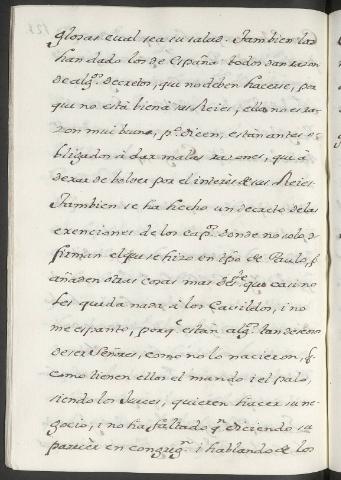 glosas cual sea su salud. Tambien las
han dado los de España todos dan razon
de alg.^s decretos, que no deben hacerse, por
que no està bien à sus Reies, ella no es ra-
zon mui buena, p.^o dicen, estàn antes o-
bligados à dar malas razones, que à
dexar de bolver por el interès de sus Reies.
Tambien se ha hecho un decreto de las
exenciones de los Cap.^s donde no solo
firman el que se hizo en tpo de Paulo,
añaden otras cosas mas de q.^e casi no
les queda nada à los Cavildos, i no
me espanto, porq.^e estan alg.^s tan deseosos
de ser Señores, como no lo nacieron, q.
como tienen ellos el mando i el palo,
siendo los Jueces, quieren hacer su ne-
gocio, i no hà faltado q.^n diciendo su
parecer en congreg.^n i hablando de los